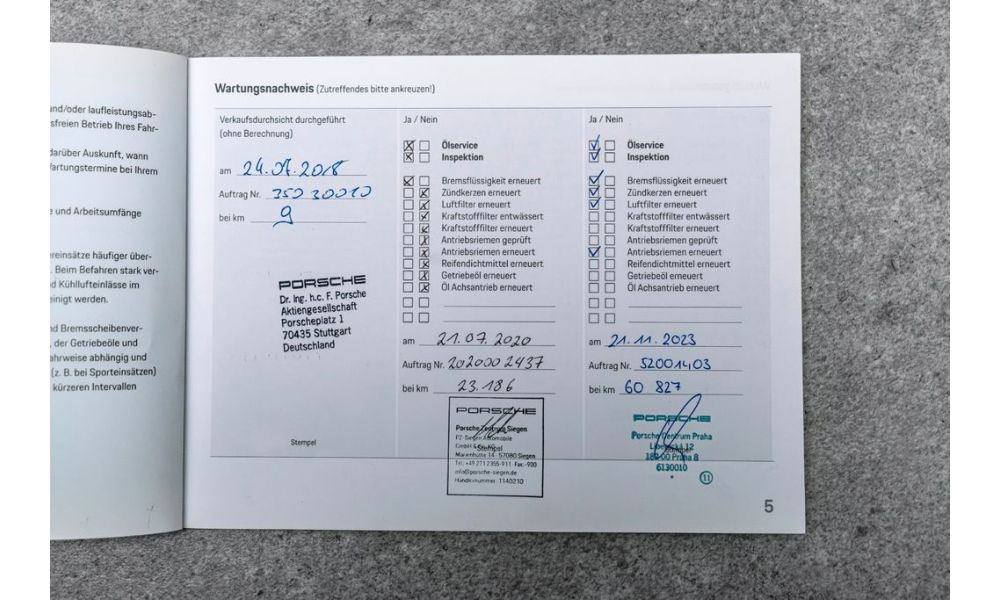 und/oder laufleistungsab-
sfreien Betrieb Ihres Fahr-
darüber Auskunft, wann
Wartungstermine bei Ihrem
e und Arbeitsumfänge
ereinsätze häufiger über-
. Beim Befahren stark ver-
d Kühllufteinlässe im
einigt werden.
nd Bremsscheibenver-
, der Getriebeöle und
ahrweise abhängig und
(z. B. bei Sporteinsätzen)
kürzeren Intervallen
Wartungsnachweis (Zutreffendes bitte ankreuzen!)
Verkaufsdurchsicht durchgeführt
(ohne Berechnung)
am 24.07.2018
Auftrag Nr. 35030010
bei km 9
PORSCHE
Dr. Ing. h.c. F. Porsche
Aktiengesellschaft
Porscheplatz 1
70435 Stuttgart
Deutschland
Stempel
Ja / Nein
Ölservice
Inspektion
Bremsflüssigkeit erneuert
Zündkerzen erneuert
Luftfilter erneuert
Kraftstofffilter entwässert
Kraftstofffilter erneuert
Antriebsriemen geprüft
Antriebsriemen erneuert
Reifendichtmittel erneuert
Getriebeöl erneuert
Öl Achsantrieb erneuert
am 21.07.2020
Auftrag Nr. 202000 2437
bei km 23.186
PORSCHE
Porsche Zentrum Siegen
Siegen Automobile
GmbH & Co. KG
Stempel
14 · 57080 Siegen
Tel.: +49 271 2355-911 · Fax: -900
info@porsche-siegen.de
Händlernummer: 1140210
Ja / Nein
Ölservice
Inspektion
Bremsflüssigkeit erneuert
Zündkerzen erneuert
Luftfilter erneuert
Kraftstofffilter entwässert
Kraftstofffilter erneuert
Antriebsriemen geprüft
Antriebsriemen erneuert
Reifendichtmittel erneuert
Getriebeöl erneuert
Öl Achsantrieb erneuert
am 21.11.2023
Auftrag Nr. 52001403
bei km 60 827
PORSCHE
Porsche Centrum Praha
Liberecká 12
Stempel
182 00 Praha 8
6130010
11
5